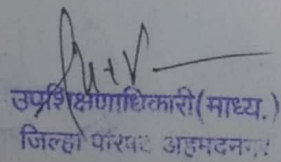 उपशिक्षणाधिकारी(माध्य.)
जिल्हा परिषद अहमदनगर